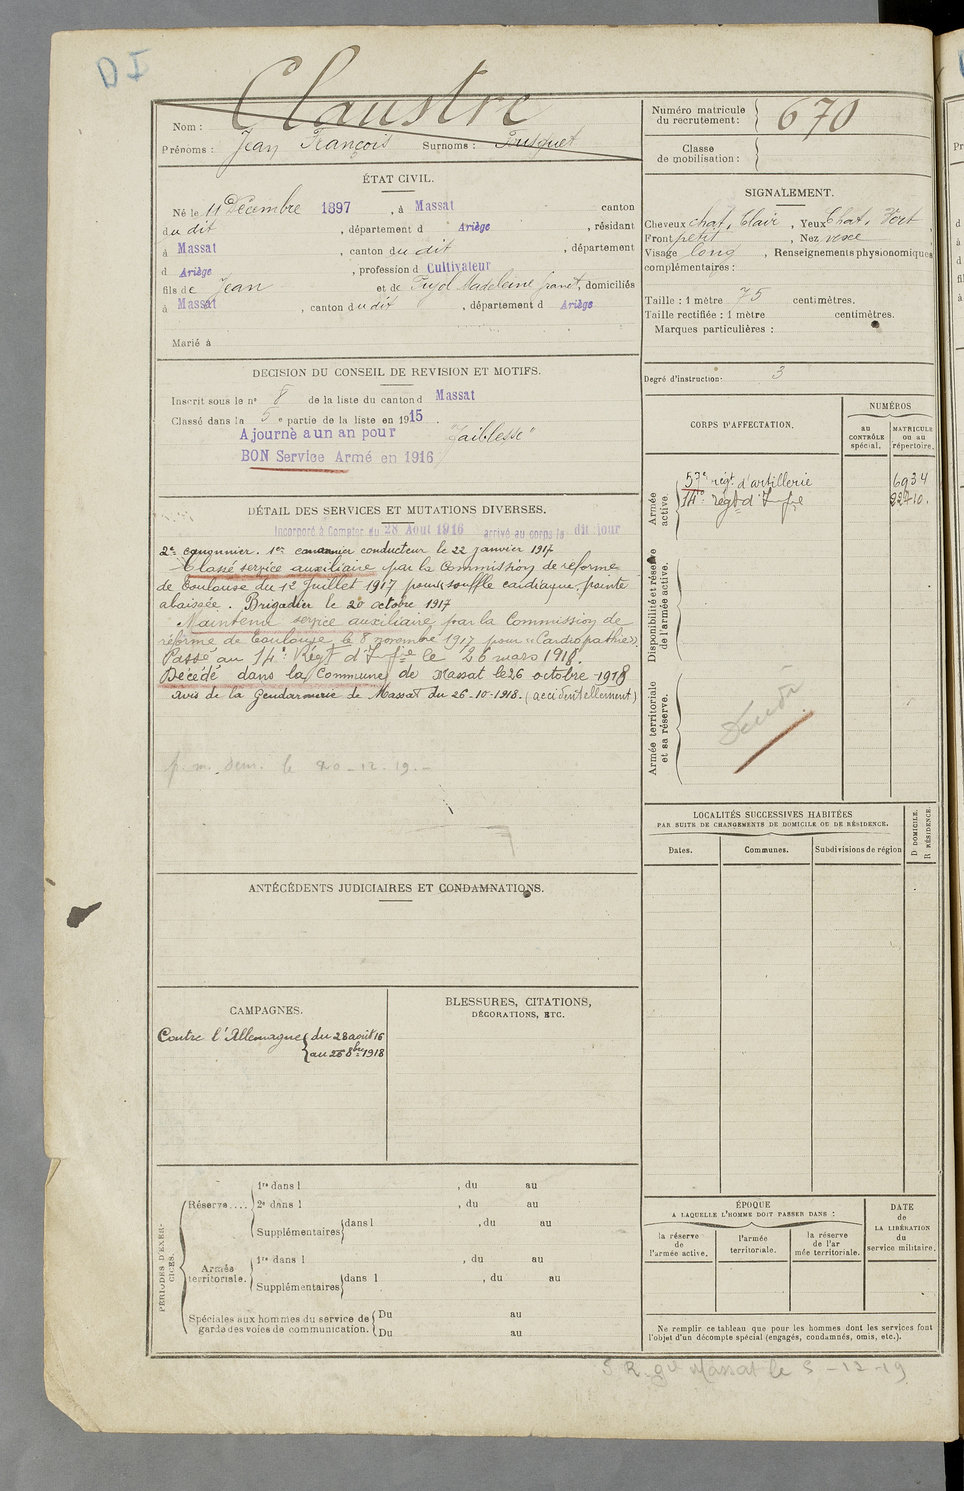 DI
Nom : Claustre
Prénoms : Jean François Surnoms :
Numéro matricule du recrutement : 670
Classe de mobilisation :
ÉTAT CIVIL.
Né le 11 Décembre 1897, à Massat canton
du dit, département d Ariège, résidant
à Massat, canton du dit, département
d Ariège, profession d Cultivateur
fils de Jean et de Pujol Madeleine, domiciliés
à Massat, canton du dit, département d Ariège
Marié à
SIGNALEMENT.
Cheveux chat. Clair, Yeux Chat. Vert,
Front petit, Nez
Visage long, Renseignements physionomiques
complémentaires :
Taille : 1 mètre 75 centimètres.
Taille rectifiée : 1 mètre centimètres.
Marques particulières :
Degré d'instruction 3
DECISION DU CONSEIL DE REVISION ET MOTIFS.
Inscrit sous le nº 8 de la liste du canton d Massat
Classé dans la 5 e partie de la liste en 1915.
Ajourné a un an pour "faiblesse"
BON Service Armé en 1916
CORPS D'AFFECTATION.
NUMÉROS
au CONTRÔLE spécial.
MATRICULE ou au répertoire.
Armée active.
57e régt d'artillerie 6934
14e Régt d'Infie 22710.
Disponibilité et réserve de l'armée active.
Armée territoriale et sa réserve.
DÉTAIL DES SERVICES ET MUTATIONS DIVERSES.
Incorporé à Compter du 28 Aout 1916 arrivé au corps le dit jour
2e canonnier. 1er canonnier conducteur le 22 janvier 1917
Classé service auxiliaire par la Commission de réforme
de Toulouse du 12 Juillet 1917 pour souffle cardiaque, pointe
abaissée. Brigadier le 20 octobre 1917
Maintenu service auxiliaire par la Commission de
réforme de Toulouse le 8 novembre 1917 pour "Cardiopathie"
Passé au 14e Régt d'Infie le 26 mars 1918.
Décédé dans la Commune de Massat le 26 octobre 1918
Avis de la Gendarmerie de Massat du 26-10-1918. (accidentellement)
LOCALITÉS SUCCESSIVES HABITÉES
PAR SUITE DE CHANGEMENTS DE DOMICILE OU DE RÉSIDENCE.
Dates.
Communes.
Subdivisions de région
D DOMICILE.
R RÉSIDENCE.
ANTÉCÉDENTS JUDICIAIRES ET CONDAMNATIONS.
CAMPAGNES.
Contre l'Allemagne { du 28 août 16
au 26 8bre 1918
BLESSURES, CITATIONS,
DÉCORATIONS, ETC.
PÉRIODES D'EXERCICES.
Réserve....
1re dans l , du au
2e dans l , du au
Supplémentaires { dans l , du au
Armée territoriale.
1re dans l , du au
Supplémentaires { dans l , du au
Spéciales aux hommes du service de garde des voies de communication. { Du au
Du au
ÉPOQUE
A LAQUELLE L'HOMME DOIT PASSER DANS :
la réserve de l'armée active.
l'armée territoriale.
la réserve de l'ar mée territoriale.
DATE de LA LIBÉRATION du service militaire.
Ne remplir ce tableau que pour les hommes dont les services font
l'objet d'un décompte spécial (engagés, condamnés, omis, etc.).